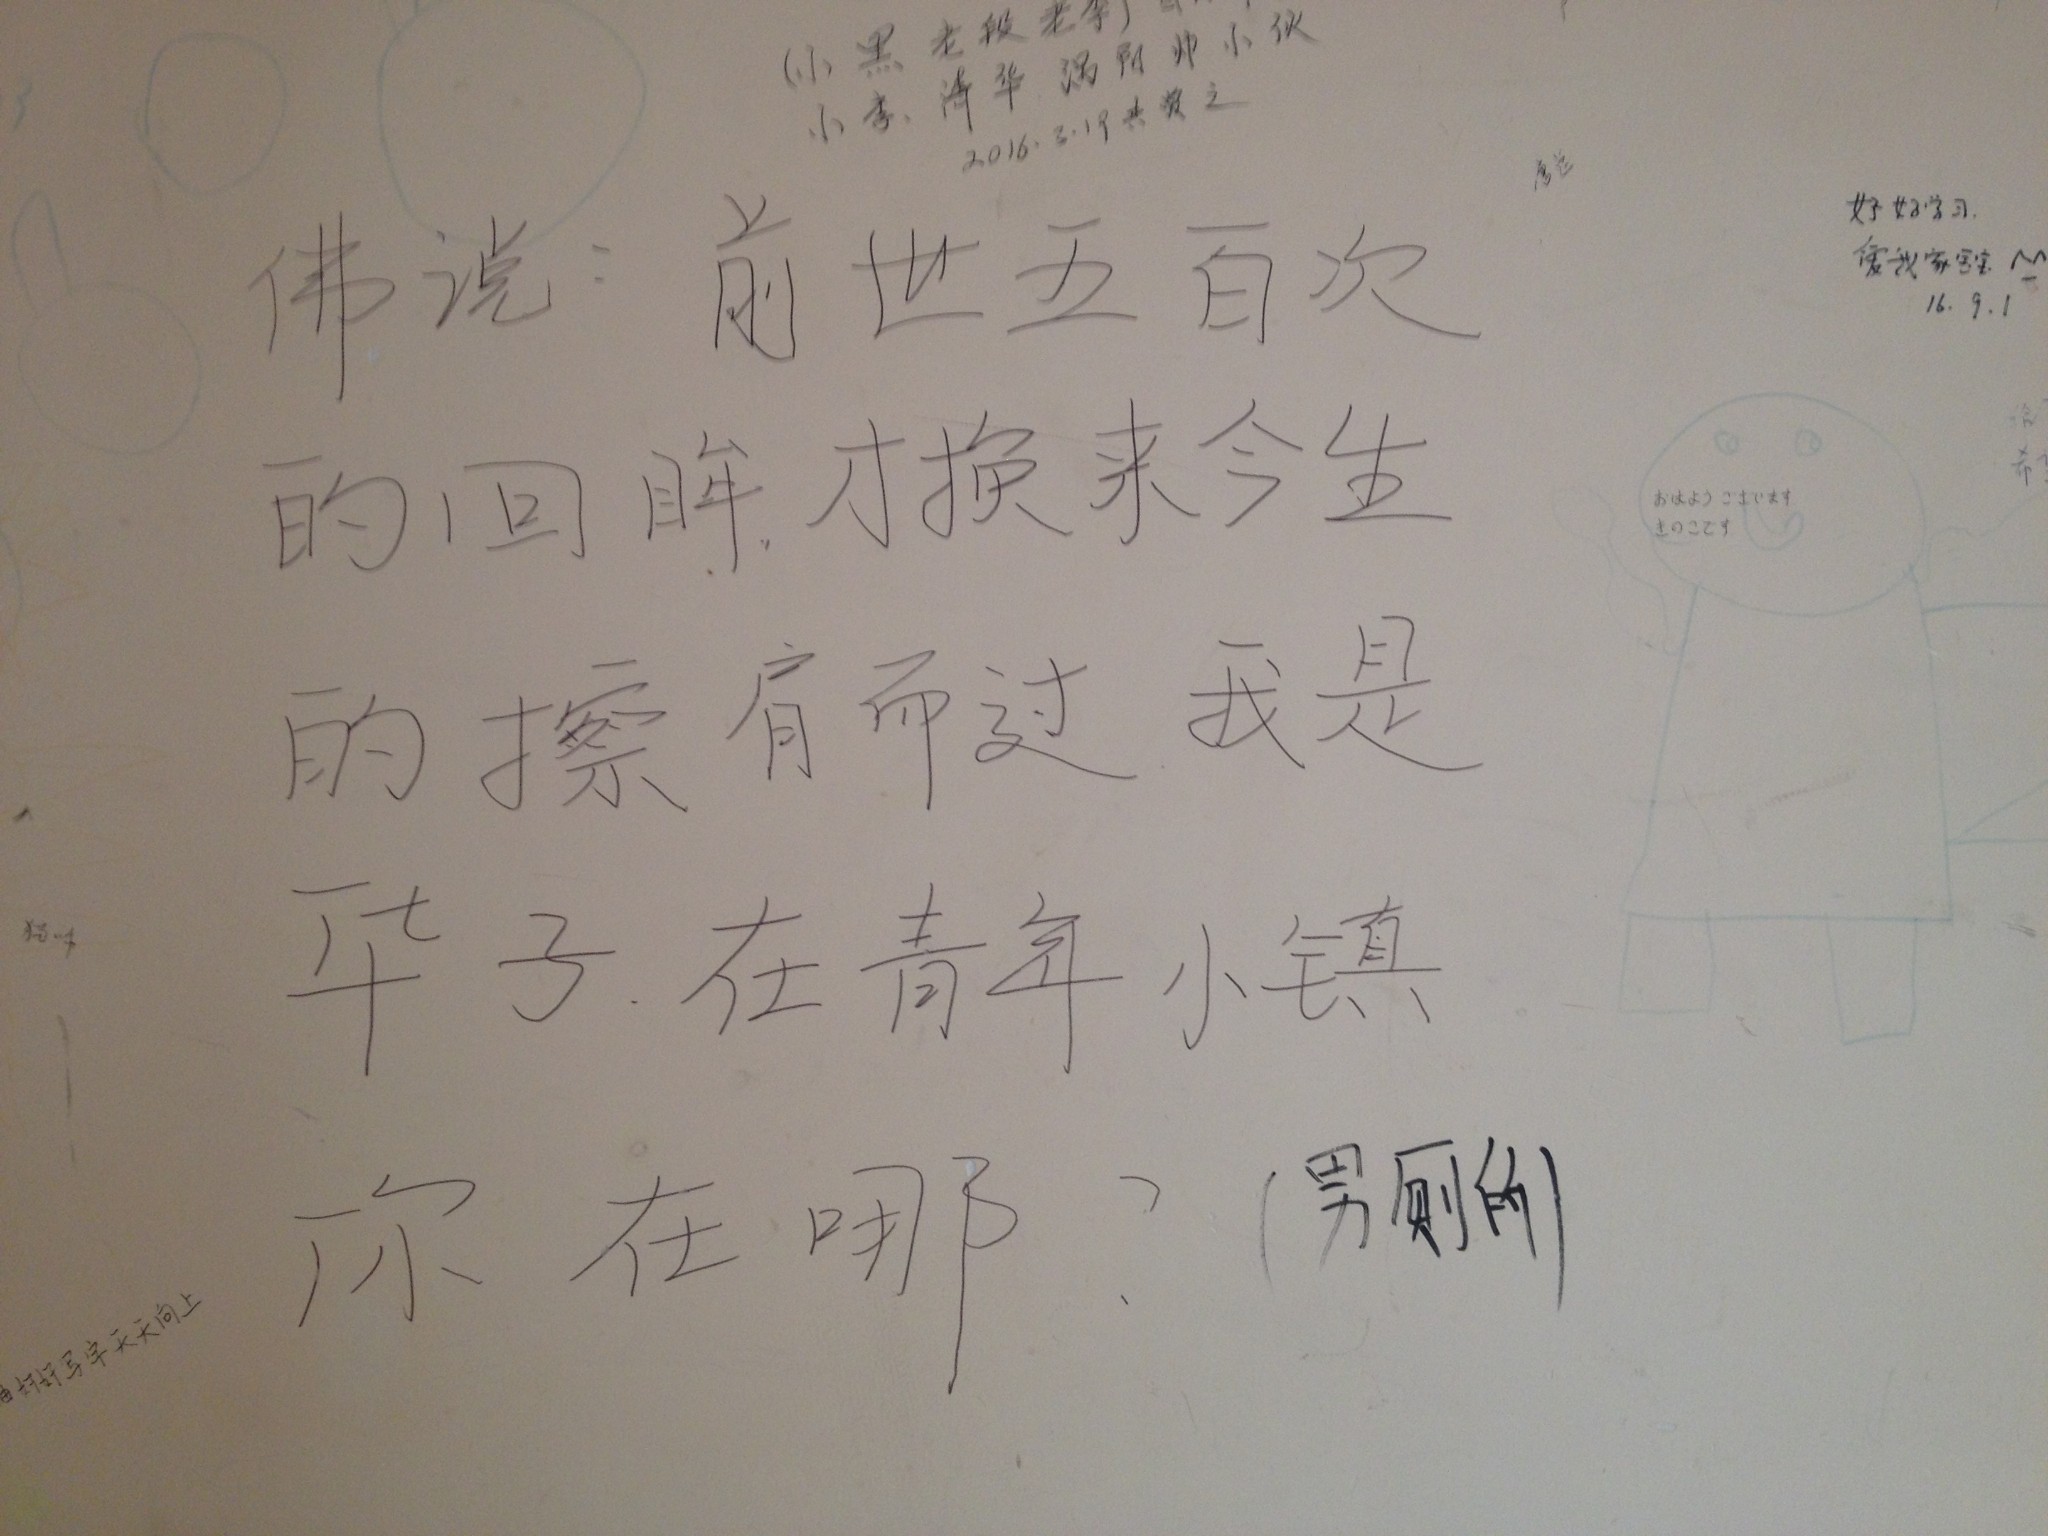 (小黑老段老李)
小李 清华 偶 帅小伙
2016.3.19 共赞之
好好学习.
爱我家宝宝
16.9.1
佛说：前世五百次
的回眸.才换来今生
的擦肩而过.我是
毕子.在青年小镇
你在哪？(男厕的)
おはようございます
きのこです
好好写字天天向上